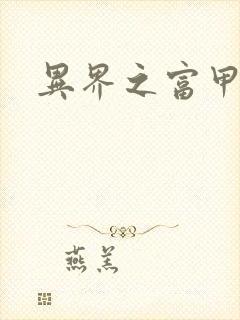 異界之富甲
燕羔